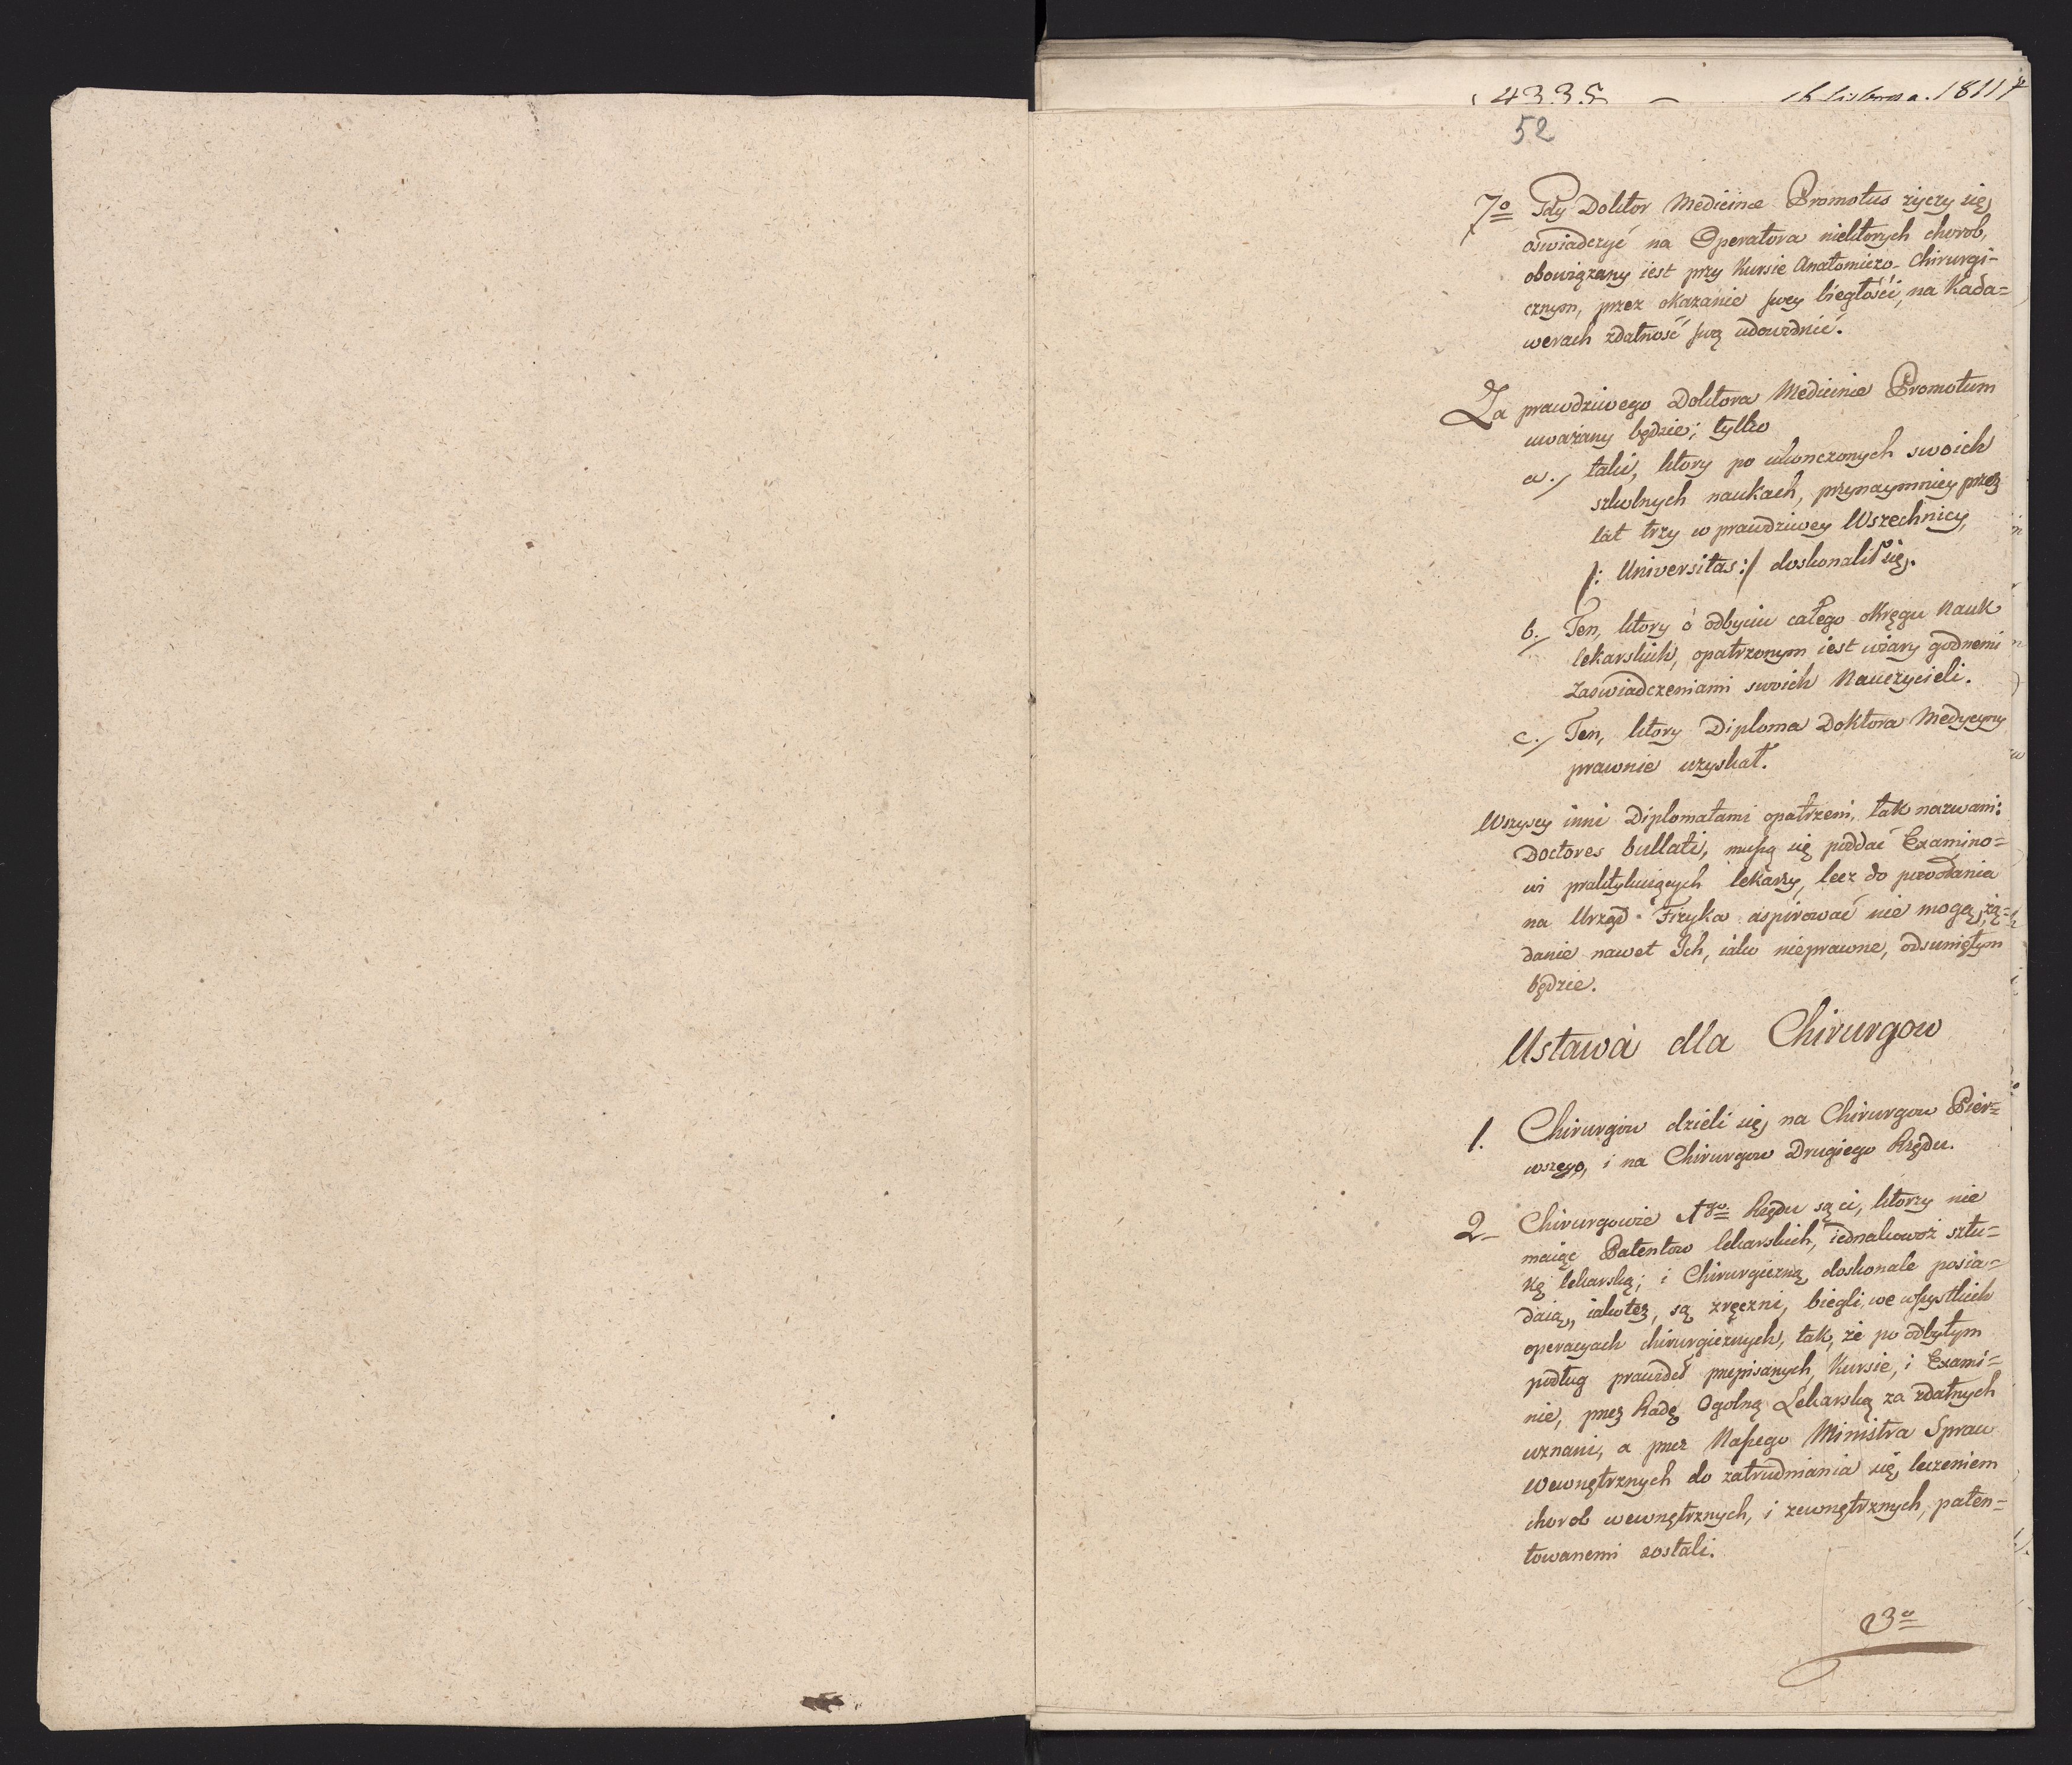 4335 — 1811
52
7o Gdy Doktor Medicinæ Promotus życzy się
oswiadczyć na Operatora niektorych chorob,
obowiązany iest przy Kursie Anatomiczo-Chirurgi-
cznym, przez okazanie swey biegłości, na Kada=
werach zdatność swą udowodnić.
Za prawdziwego Doktora Medicinæ Promotum
uważany będzie; tylko
a./ taki, ktory po ukonczonych swoich
szkolnych naukach, przynaymniey przez
lat trzy w prawdziwey Wszechnicy,
/: Universitas:/ doskonalił się.
b./ Ten, ktory o odbyciu całego okręgu Nauk
lekarskich, opatrzonym iest wiary godnemi
zaswiadczeniami swoich Nauczycieli.
c./ Ten, ktory Diploma Doktora Medycyny
prawnie uzyskał.
Wszyscy inni Diplomatami opatrzeni, tak nazwani:
Doctores bullati, muszą się poddać Examino=
wi praktykuiących lekarzy, lecz do powołania
na Urząd Fizyka aspirować nie mogą, żą=
danie nawet Ich, iako nieprawne, odsuniętym
będzie.
Ustawa dla Chirurgow
1. Chirurgow dzieli się na Chirurgow Pier=
wszego, i na Chirurgow Drugiego Rzędu.
2– Chirurgowie 1go Rzędu są ci, ktorzy nie
maiąc Patentow lekarskich, iednakowoż sztu=
kę lekarską; i Chirurgiczną doskonale posia=
daią, iako też, są zręczni, biegli, we wszystkich
operacyach chirurgicznych, tak, że po odbytym
podług prawideł przepisanych, Kursie, i Exami=
nie, przez Radę Ogolną Lekarską za zdatnych
uznani, a przez Naszego Ministra Spraw
Wewnętrznych do zatrudniania się leczeniem
chorob wewnętrznych, i zewnętrznych, paten=
towanemi zostali.
3o